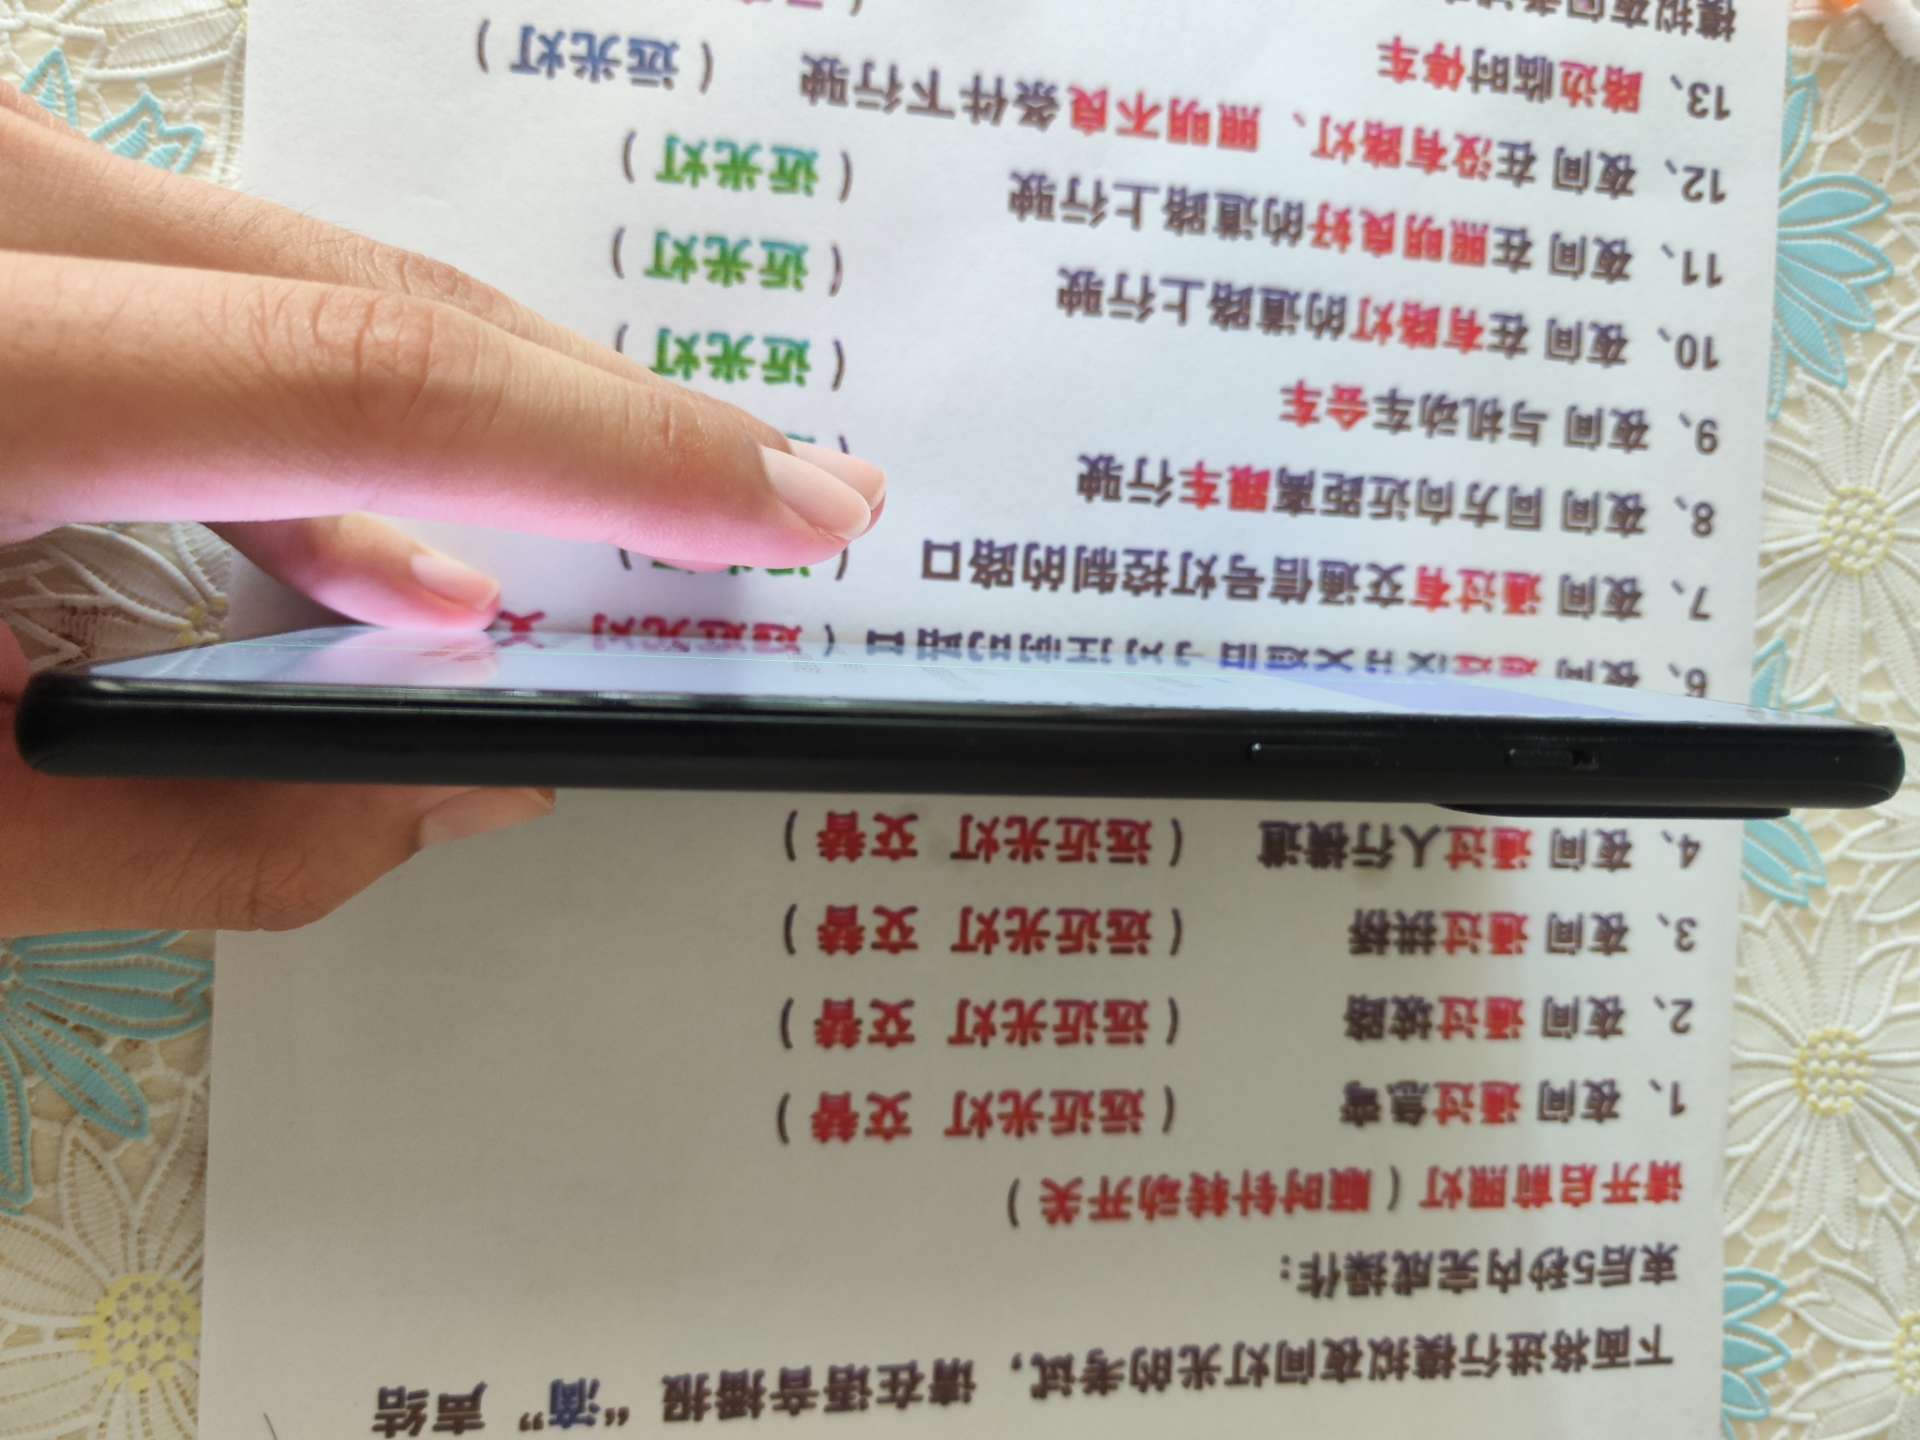 下面将进行模拟夜间灯光的考试，请在语音播报“滴”声结
束后5秒内完成操作：
请开启前照灯（顺时针转动开关）
1、夜间 通过急弯 （远近光灯 交替）
2、夜间 通过坡路 （远近光灯 交替）
3、夜间 通过拱桥 （远近光灯 交替）
4、夜间 通过人行横道 （远近光灯 交替）
6、夜间
7、夜间 通过有交通信号灯控制的路口 （
8、夜间 同方向近距离跟车行驶 （
9、夜间 与机动车会车 （近光灯）
10、夜间 在有路灯的道路上行驶 （近光灯）
11、夜间 在照明良好的道路上行驶 （近光灯）
12、夜间 在没有路灯、照明不良条件下行驶 （远光灯）
13、路边临时停车
模拟夜间考试